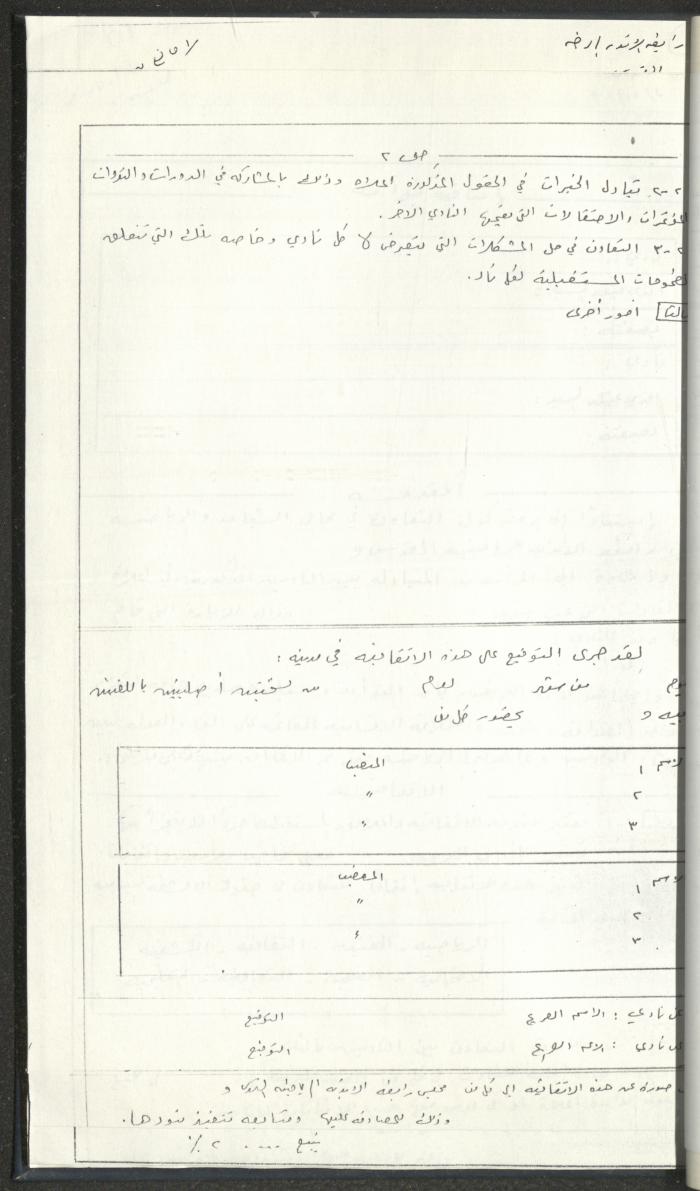 رابطة الأندية الرياضية
ص ٢
٢-٢ تبادل الخبرات في الحقول المذكورة اعلاه وذلك بالمشاركة في الدورات والندوات
المؤتمرات والاحتفالات التي يقيمها النادي الآخر.
٢-٣ التعاون في حل المشكلات التي يتعرض لها كل نادي وخاصه تلك التي تتعلق
المستقبلية لكل نادٍ.
ثالثا امور أخرى
لقد جرى التوقيع على هذه الاتفاقية في مدينة :
يوم من شهر لعام من نسختين أصليتين باللغتين
و بحضور كل من
الاسم ١ المنصب
٢ "
٣ "
الاسم ١ المنصب
٢ "
٣ "
عن نادي : الاسم الصريح التوقيع
عن نادي : الاسم الصريح التوقيع
صورة عن هذه الاتفاقية الى كل من مجلس رابطة الاندية الرياضية و
وذلك للمصادقه عليها ومتابعه تنفيذ بنودها.
يتبع .... ٢/